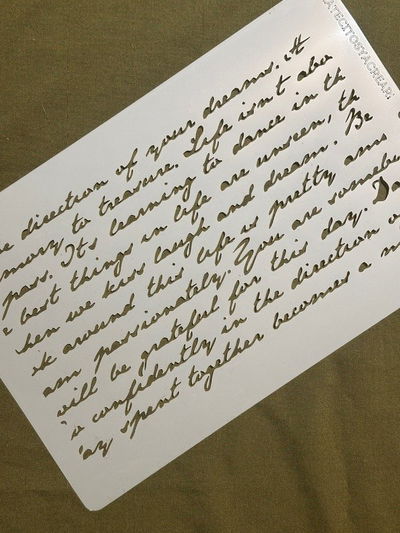 ATECITOSYACREAR
e direction of your dreams. It
mory to treasure. Life isn't abo
pass. It's learning to dance in th
e best things in life are unseen, th
hen we kiss laugh and dream. Be
ok around this life is pretty ama
am passionately. You are somebo
will be grateful for this day.
o confidently in the direction o
ay spent together becomes a m